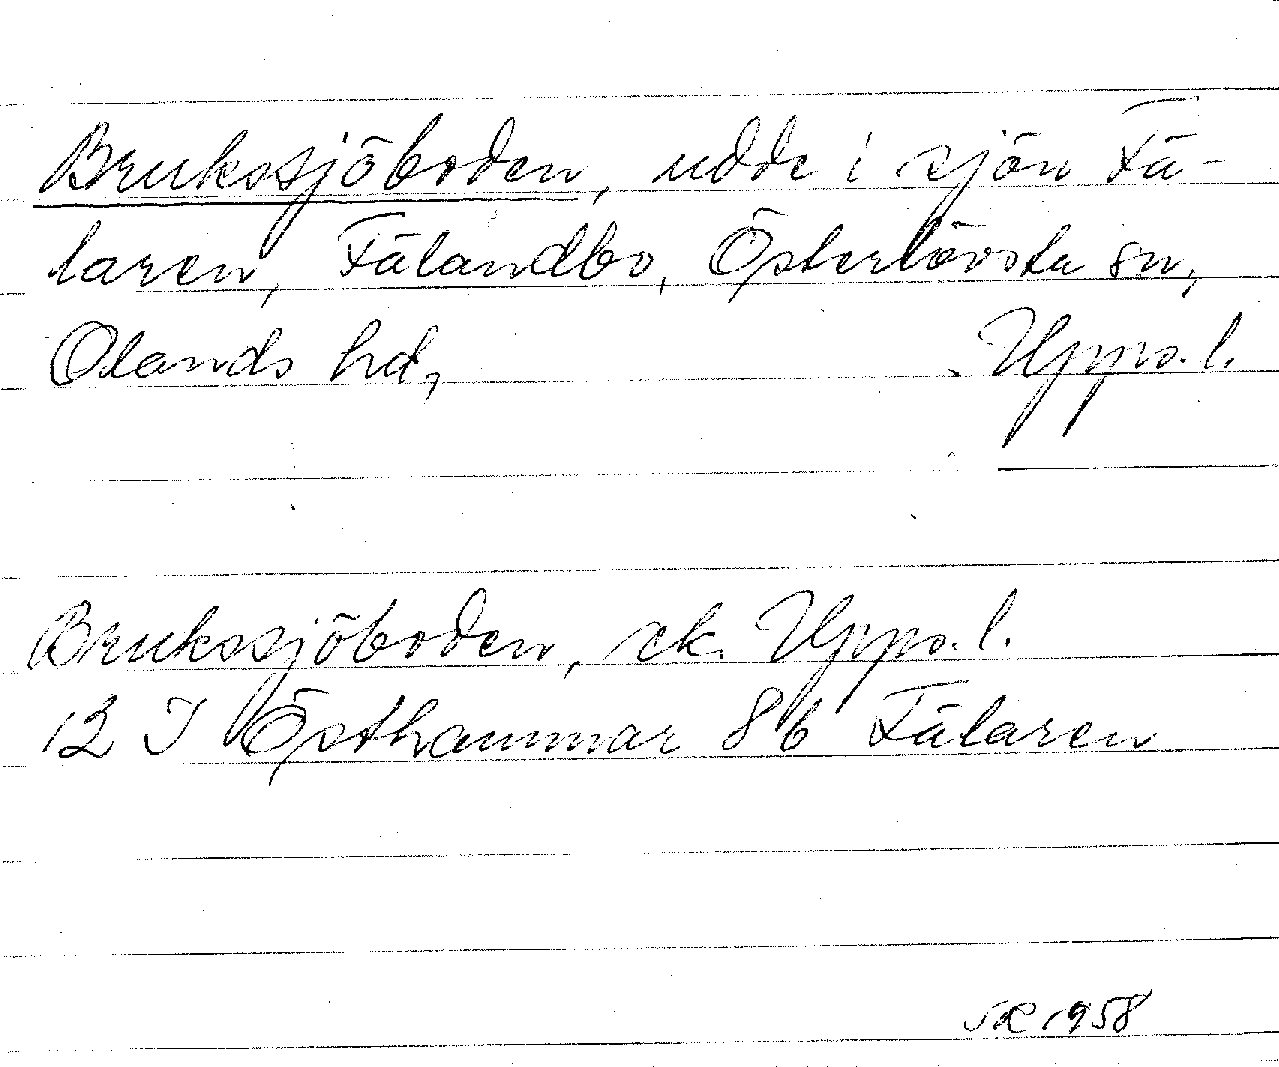 Brukssjöboden, udde i sjön Fä-
laren, Fälandbo, Österlövsta sn,
Olands hd, Upps. l.
Brukssjöboden, ek. Upps. l.
12 I Östhammar 8 b Fälaren
1958